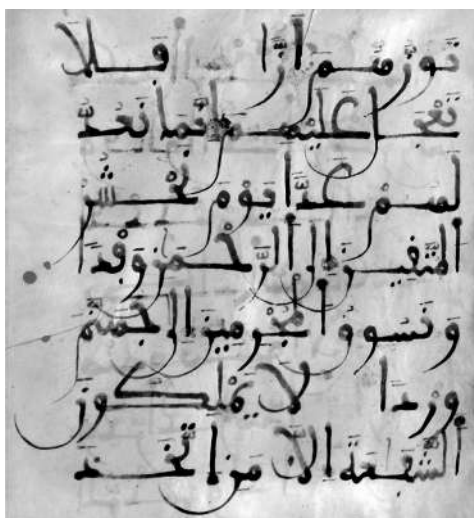 تؤزهم أزا فلا
تعجل عليهم إنما نعد
لهم عدا يوم نحشر
المتقين إلى الرحمن وفدا
ونسوق المجرمين إلى جهنم
وردا لا يملكون
الشفعة إلا من اتخذ